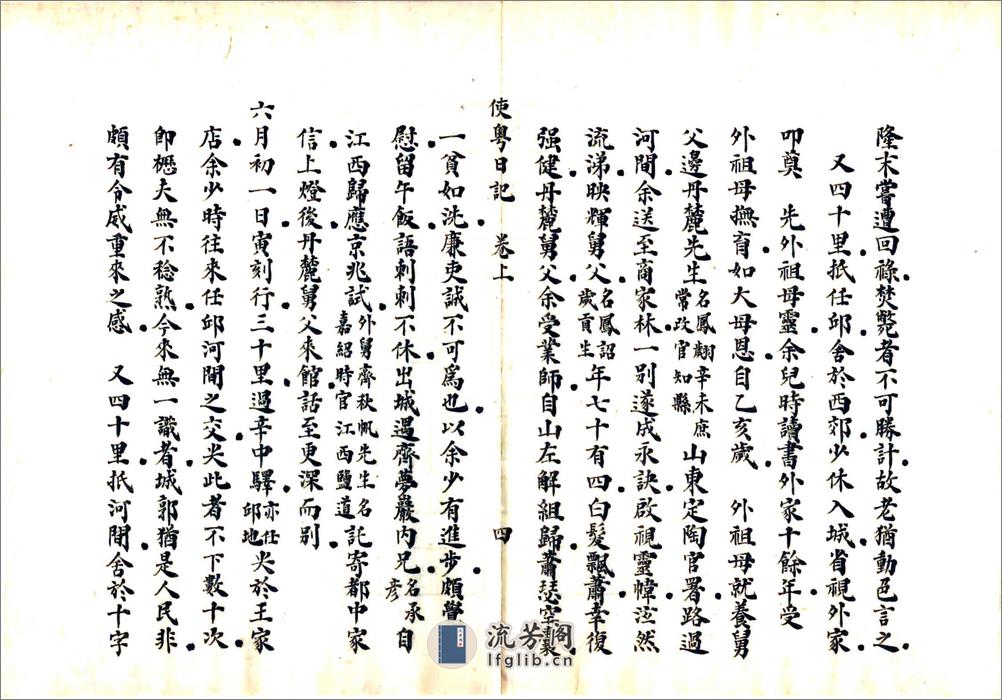 隆末嘗遭回祿焚斃者不可勝計故老猶動色言之
又四十里抵任邱舍於西郊少休入城省視外家
叩奠　先外祖母靈余兒時讀書外家十餘年受
外祖母撫育如大母恩自乙亥歲　外祖母就養舅
父邊丹麓先生名鳳翽辛未庶常改官知縣山東定陶官署路過
河間余送至商家林一別遂成永訣啟視靈幃泫然
流涕映輝舅父名鳳詔歲貢生年七十有四白髮飄蕭幸復
强健丹麓舅父余受業師自山左解組歸蕭瑟空囊
使粵日記　卷上　四
一貧如洗廉吏誠不可爲也以余少有進步頗覺
慰留午飯語刺刺不休出城遇齊夢巖內兄名承彥自
江西歸應京兆試外舅齊秋帆先生名嘉紹時官江西鹽道託寄都中家
信上燈後丹麓舅父來館話至更深而別
六月初一日寅刻行三十里過辛中驛亦任邱地尖於王家
店余少時往來任邱河間之交尖此者不下數十次
卽櫪夫無不稔熟今來無一識者城郭猶是人民非
頗有令威重來之感　又四十里抵河間舍於十字
流芳閣
lfglib.cn